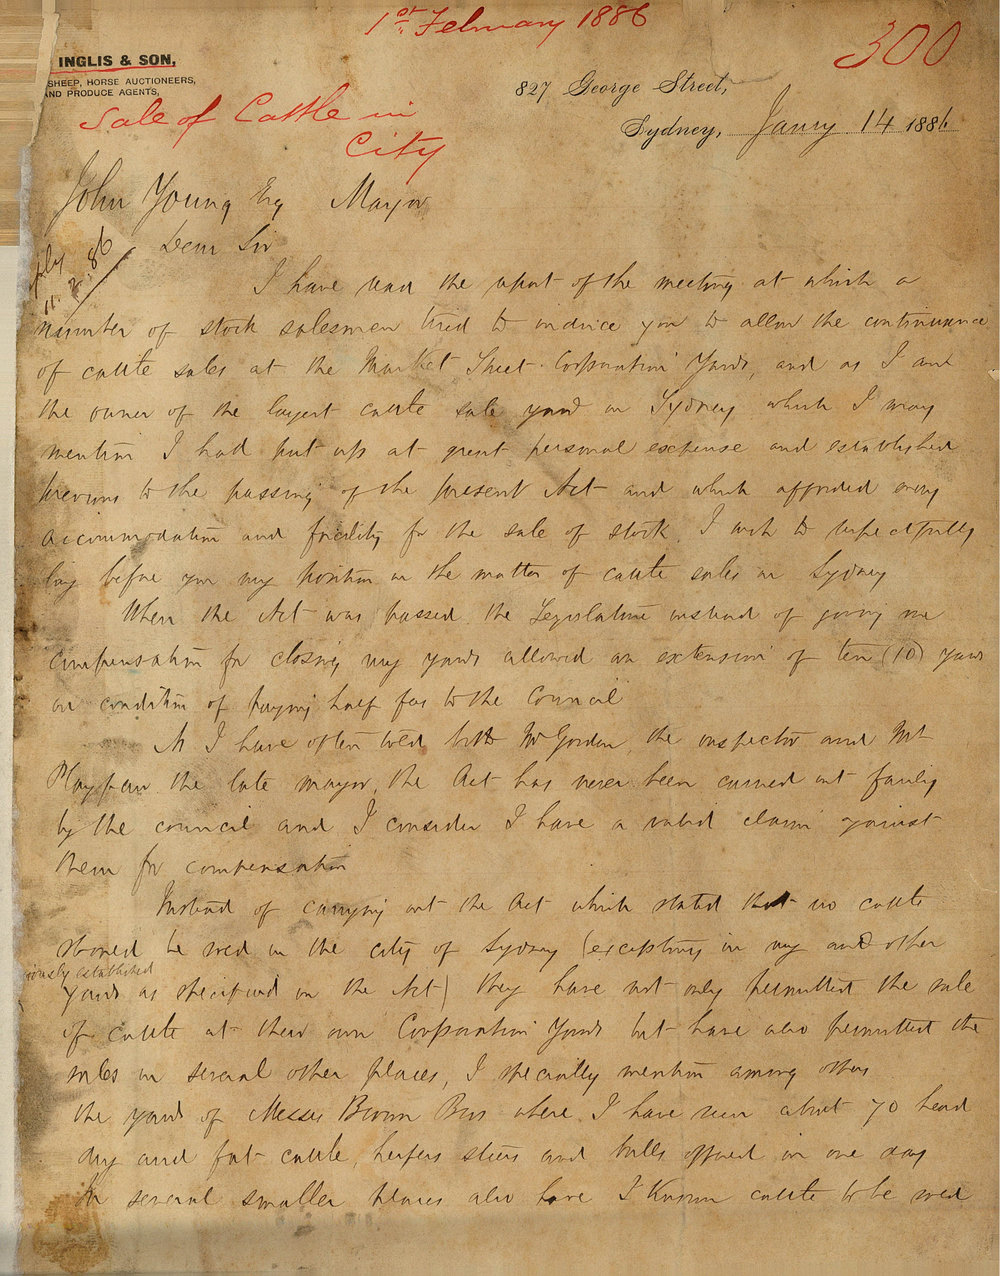 1st February 1886
300
INGLIS & SON,
SHEEP, HORSE AUCTIONEERS,
AND PRODUCE AGENTS,
827 George Street,
Sydney, Janry 14 1886
Sale of Cattle in
City
John Young Esq Mayor
Dear Sir
11.2.86
I have read the report of the meeting at which a
number of stock salesmen tried to induce you to allow the continuance
of cattle sales at the Market Street Corporation Yards, and as I am
the owner of the largest cattle sale yard in Sydney which I may
mention I had put up at great personal expense and established
previous to the passing of the present Act and which afforded every
accommodation and facility for the sale of stock, I wish to respectfully
lay before you my position in the matter of cattle sales in Sydney
When the Act was passed the Legislature instead of giving me
compensation for closing my yards allowed an extension of ten (10) years
on condition of paying half fees to the Council
As I have often told both Mr Gordon, the inspector and Mr
Playfair the late mayor, the Act has never been carried out fairly
by the council and I consider I have a valid claim against
them for compensation
Instead of carrying out the Act which stated that no cattle
should be sold in the city of Sydney (excepting in my and other
iously established
yards as specified in the Act) they have not only permitted the sale
of cattle at their own Corporation Yards but have also permitted the
sales in several other places, I specially mention among others
the yards of Messrs Brown Bros where I have seen about 70 head
dry and fat cattle, heifers steers and bulls offered in one day
In several smaller places also have I known cattle to be sold